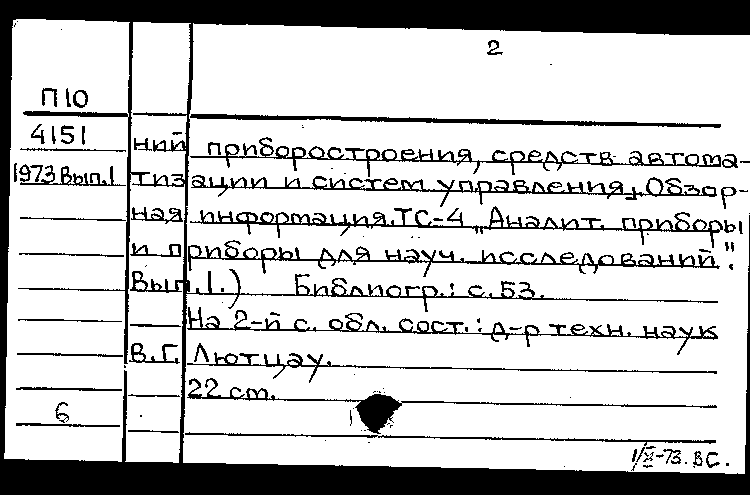 2
П10
4151
1973 Вып.1
ний приборостроения, средств автома-
тизации и систем управления. Обзор-
ная информация. ТС-4 „Аналит. приборы
и приборы для науч. исследований".
Вып.1.) Библиогр.: с.53.
На 2-й с. обл. сост.: д-р техн. наук
В.Г. Лютцау.
22 cm.
6
1/X-73. ВС.